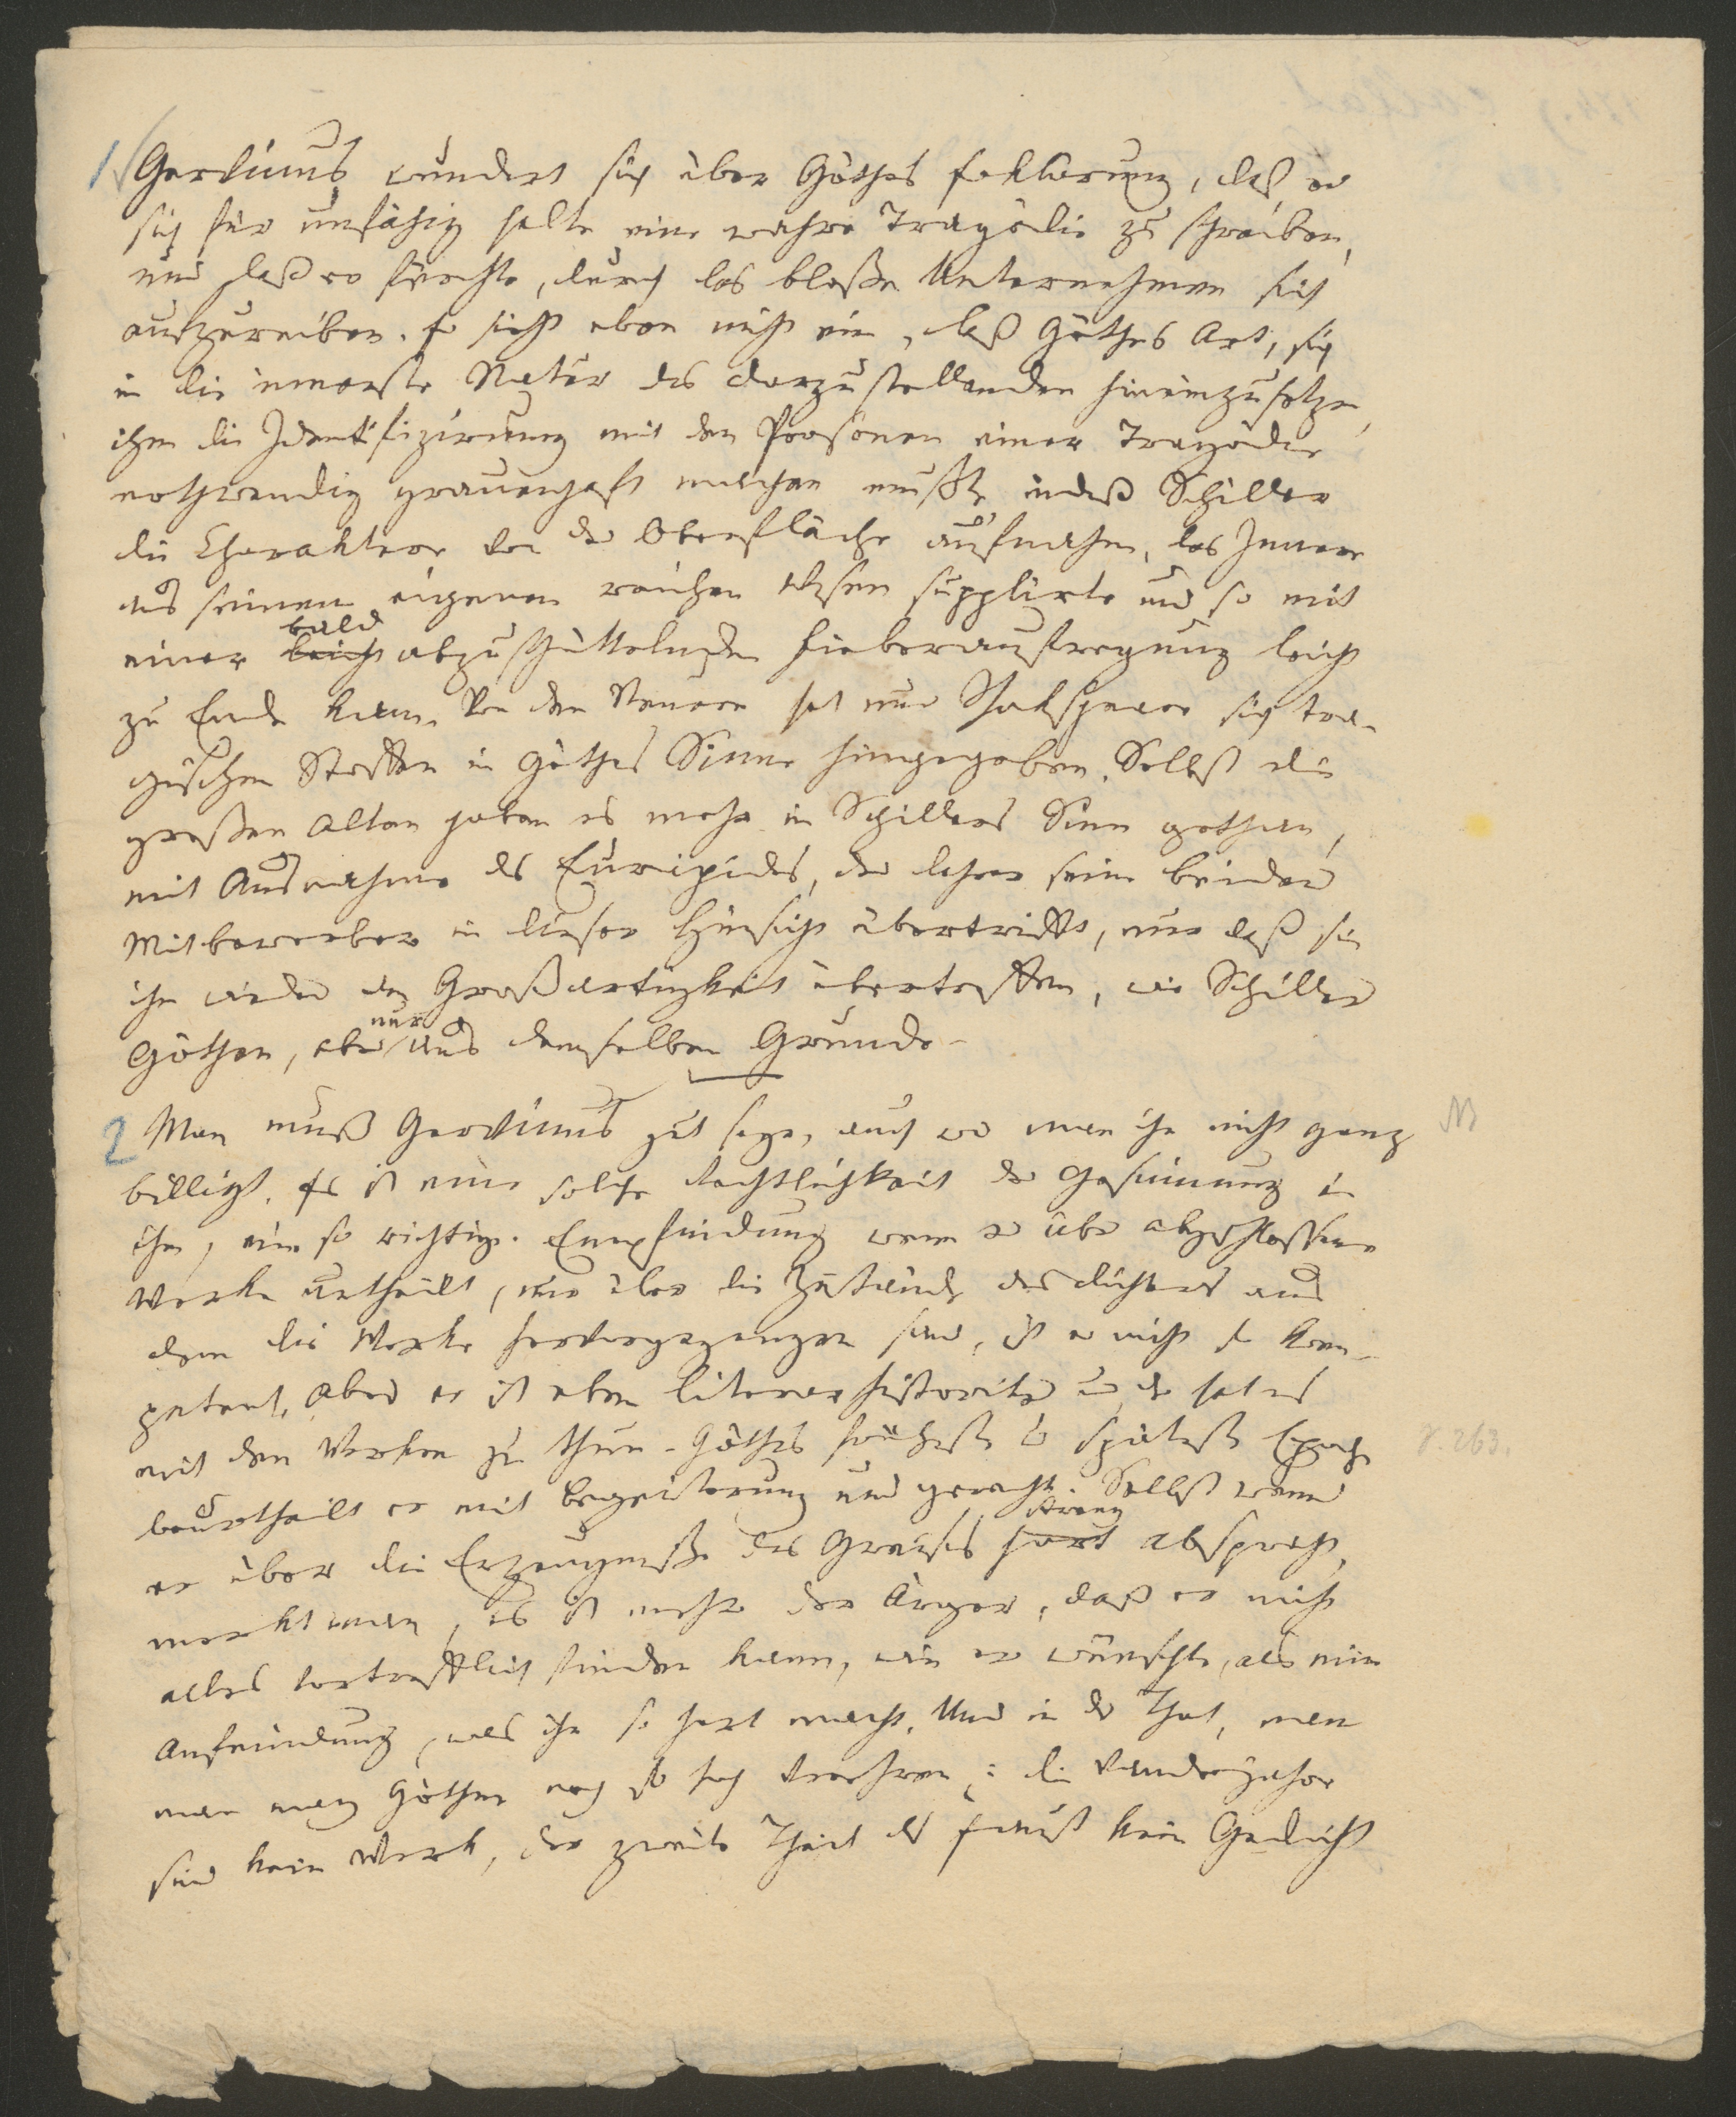 1 Gervinus wundert sich über Göthes Erklärung, daß er
sich für unfähig halte eine wahre Tragödie zu schreiben,
und daß er fürchte, durch das bloße Unternehmen sich
aufzureiben. Er sieht eben nicht ein, daß Göthes Art, sich
in die innerste Natur des darzustellenden hineinzusetzen,
ihm die Identifizirung mit den Personen einer Tragödie
nothwendig grauenhaft machen mußte, indeß Schiller
die Charaktere von der Oberfläche aufnahm, das Innere
aus seinem eigenen reichen Wesen supplirte und so mit
bald
einer leicht abzuschüttelnden Fieberaufregung leicht
zu Ende kam. Von den Neuern hat nur Shakspeare sich tra-
gischen Stoffen in Göthes Sinne hingegeben. Selbst die
großen Alten haben es mehr in Schillers Sinn gethan,
mit Ausnahme des Euripides, der daher seine beiden
Mitbewerber in dieser Hinsicht übertrifft, nur daß sie
ihn wieder an Großartigkeit übertreffen, wie Schiller
nur
Göthen, aber aus demselben Grunde.
2 Man muß Gervinus gut seyn, auch wo man ihn nicht ganz NB
billigt. Es ist eine solche Rechtlichkeit der Gesinnung in
ihm, eine so richtige Empfindung wenn er über abgeschlossene
Werke urtheilt, nur über die Zustände des Dichters aus
dem die Werke hervorgegangen sind, ist er nicht so kom-
petent. Aber er ist eben Literarhistoriker und der hat es
mit den Werken zu thun. Göthes früheste u späteste Epoche
263.
beurtheilt er mit Begeisterung und gerecht. Selbst wenn
streng
er über die Erzeugnisse des Greises hart abspricht,
merkt man, es ist mehr der Ärger, daß er nicht
alles vortrefflich finden kann, wie er wünschte, als eine
Anfeindung, was ihn so hart macht. Und in der That, man
man mag Göthen noch so hoch verehren: die Wanderjahre
sind kein Werk, der zweite Theil des Faust kein Gedicht